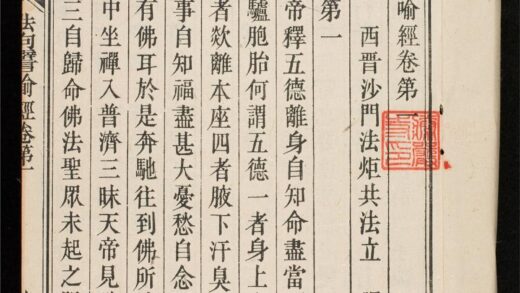 喻經卷第一
西晉沙門法炬共法立
第一
帝釋五德離身自知命盡當
驢胞胎何謂五德一者身上
者欻離本座四者腋下汗臭
事自知福盡甚大憂愁自念
有佛耳於是奔馳往到佛所
中坐禪入普濟三昧天帝見
三自歸命佛法聖眾未起之
法句譬喻經卷第一